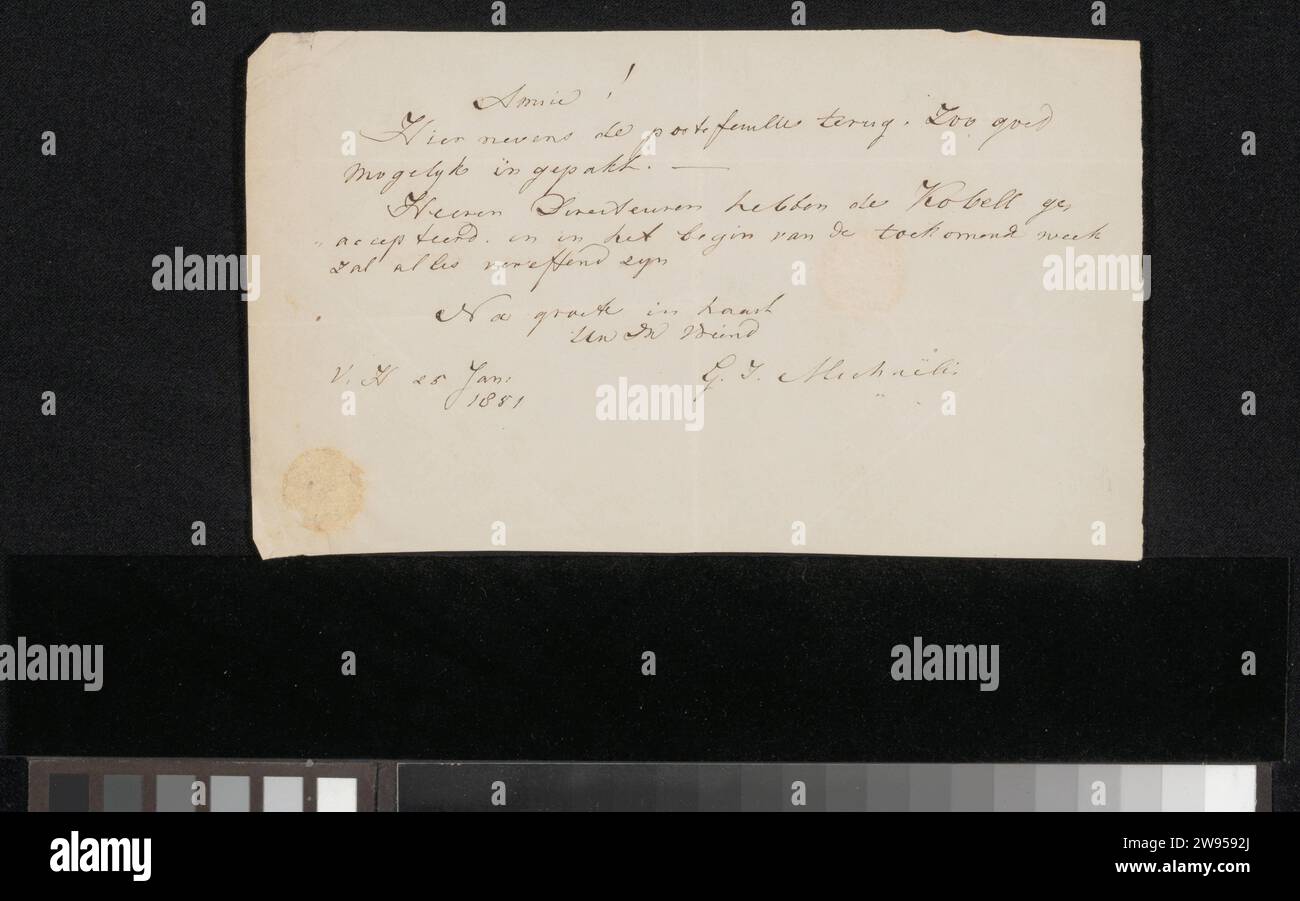 Amice !
Hier nevens de portefeuille terug. Zoo goed
mogelyk ingepakt. —
Heeren Directeuren hebben de Kobell ge„
„accepteerd. en in het begin van de toekomende week
zal alles vereffend zyn
Na groete in haast
Uw Vriend
V. H 25 Jan:
1851
G. J. Michaëlis
alamy
alamy
alamy
alamy
alamy
Image ID: 2W9592J
www.alamy.com